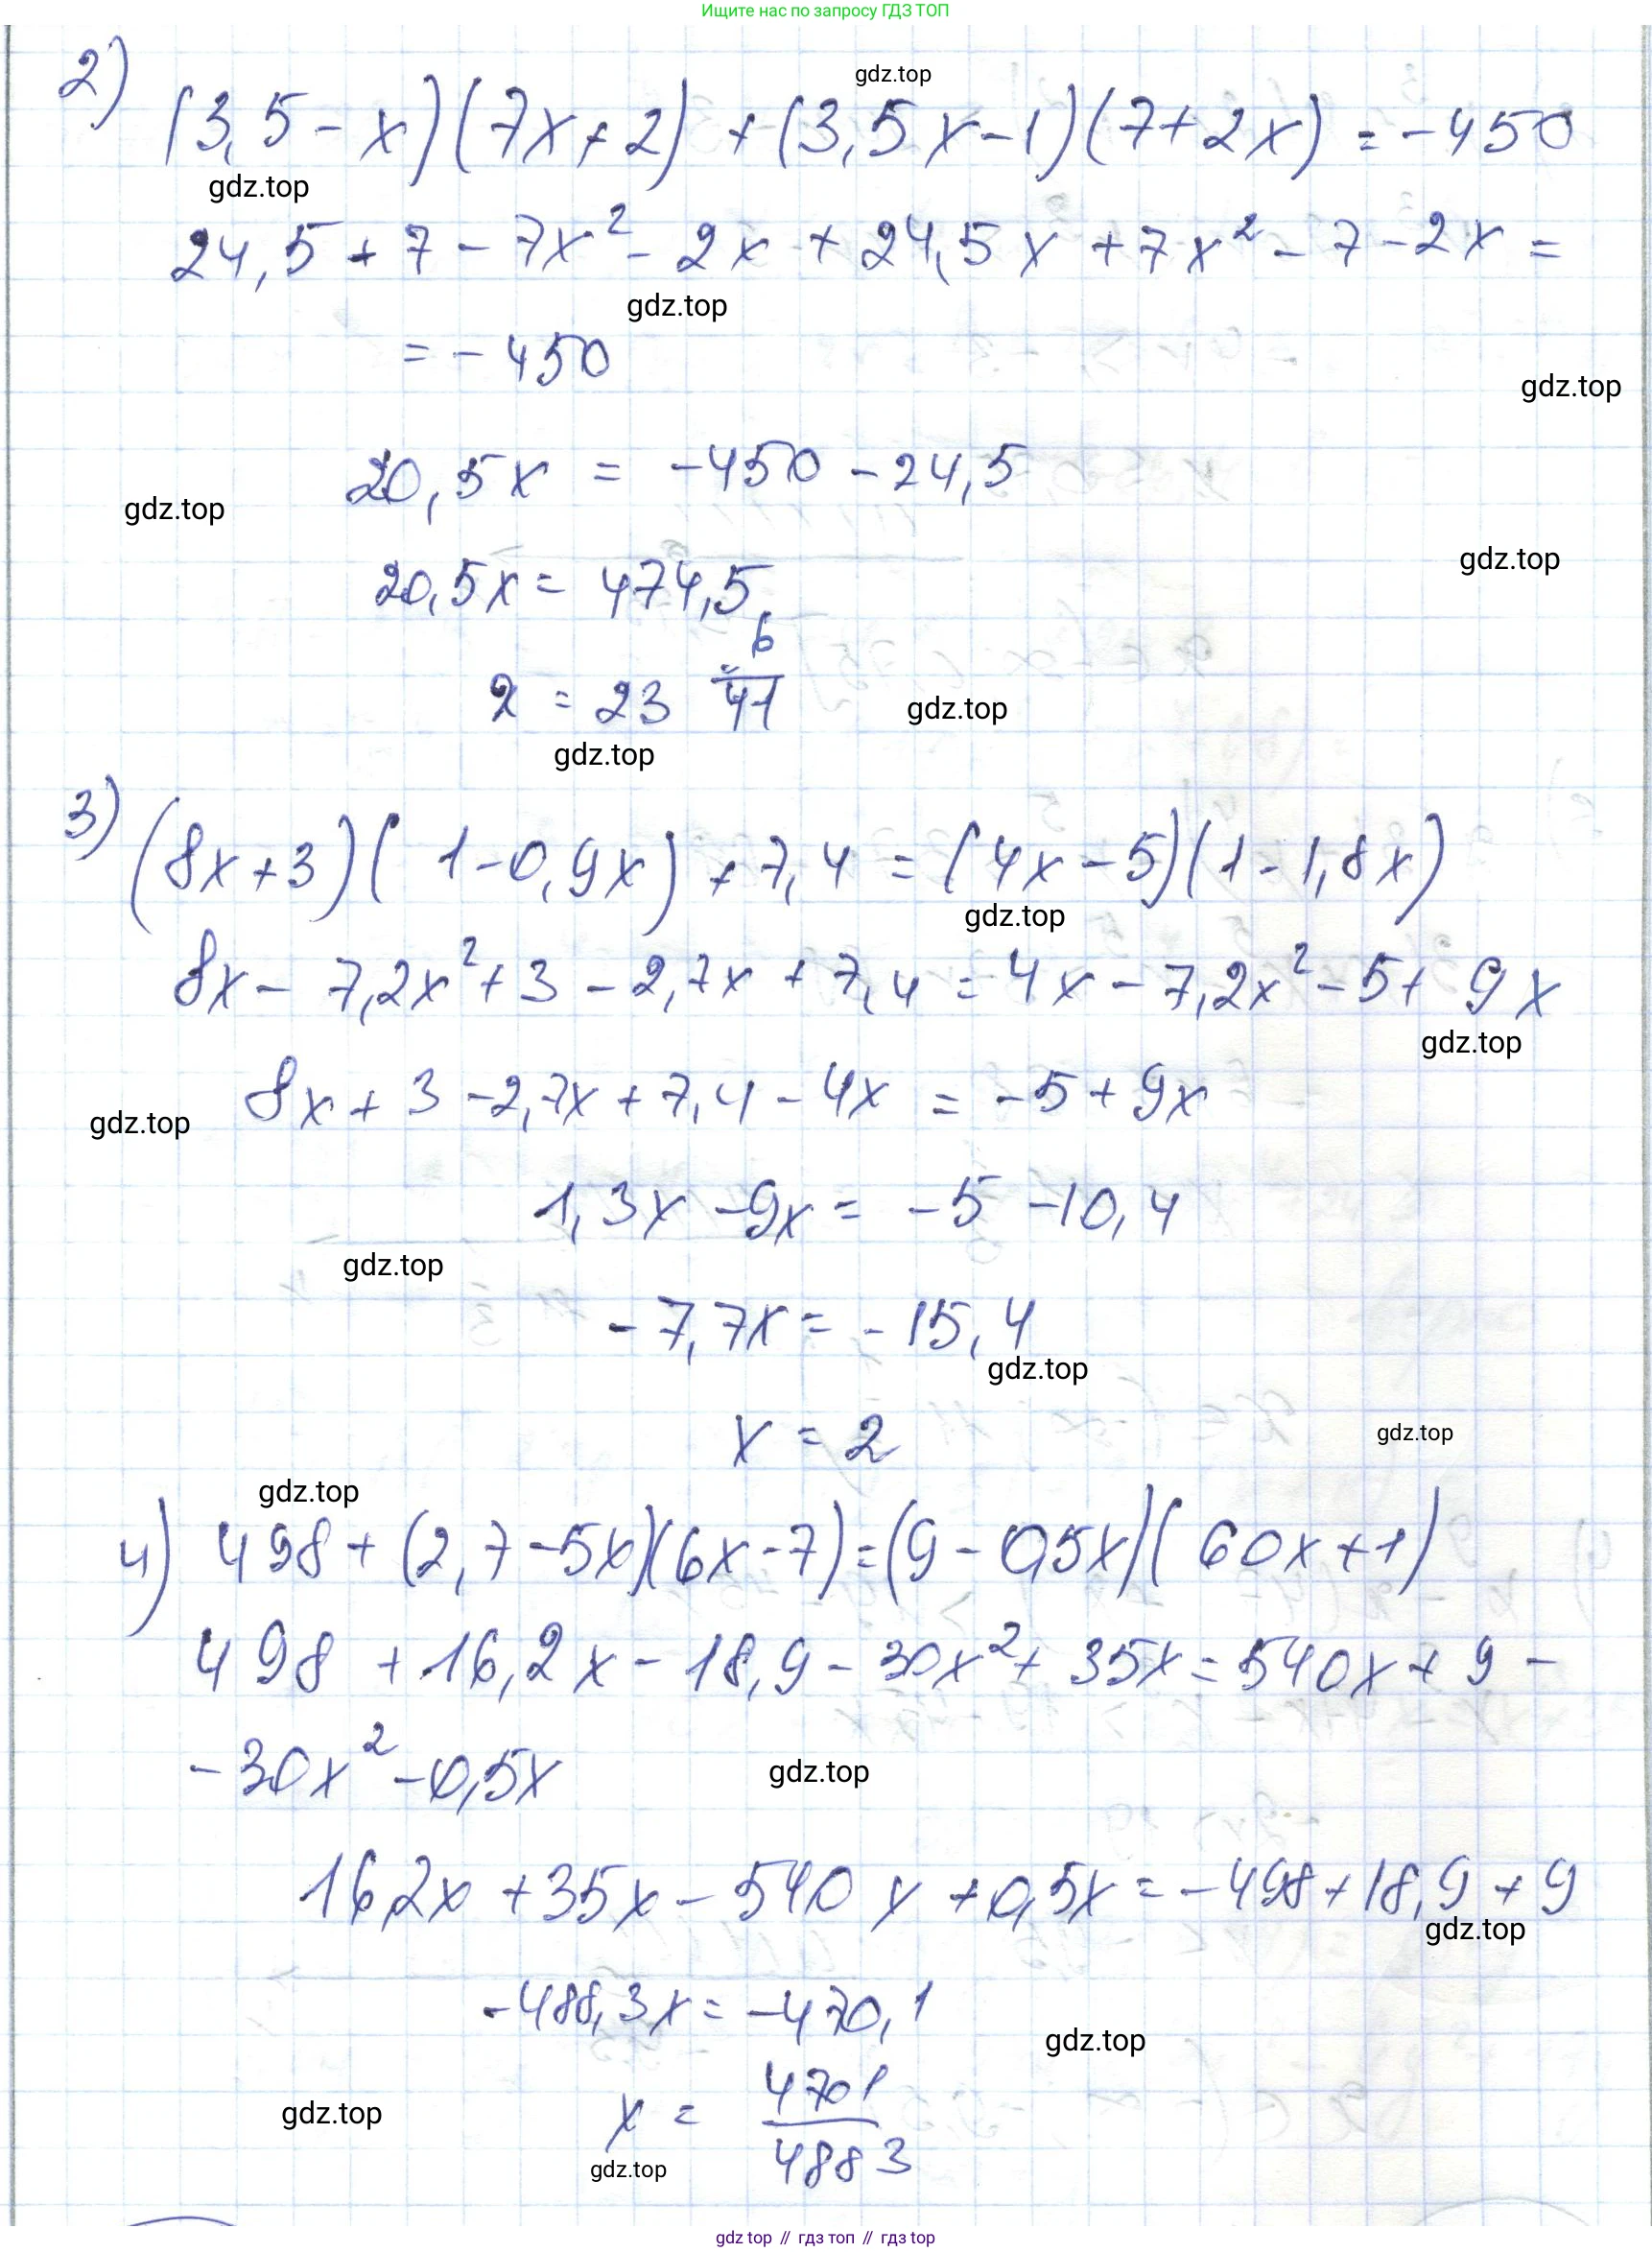 Ищите нас по запросу ГДЗ ТОП
gdz.top
2) (3,5 - x)(7x + 2) + (3,5x - 1)(7 + 2x) = -450
gdz.top
24,5 + 7 - 7x² - 2x + 24,5x + 7x² - 7 - 2x =
gdz.top
= -450
gdz.top
20,5x = -450 - 24,5
gdz.top
gdz.top
20,5x = 474,5
x = 23 6/41
gdz.top
gdz.top
3) (8x + 3)(1 - 0,9x) + 7,4 = (4x - 5)(1 - 1,8x)
gdz.top
8x - 7,2x² + 3 - 2,7x + 7,4 = 4x - 7,2x² - 5 + 9x
gdz.top
8x + 3 - 2,7x + 7,4 - 4x = -5 + 9x
gdz.top
1,3x - 9x = -5 - 10,4
gdz.top
-7,7x = -15,4
gdz.top
x = 2
gdz.top
gdz.top
4) 498 + (2,7 - 5x)(6x - 7) = (9 - 0,5x)(60x + 1)
498 + 16,2x - 18,9 - 30x² + 35x = 540x + 9 -
-30x² - 0,5x
gdz.top
16,2x + 35x - 540x + 0,5x = -498 + 18,9 + 9
gdz.top
-488,3x = -470,1
gdz.top
x = 4701/4883
gdz.top
gdz.top
gdz top // гдз топ // гдз top